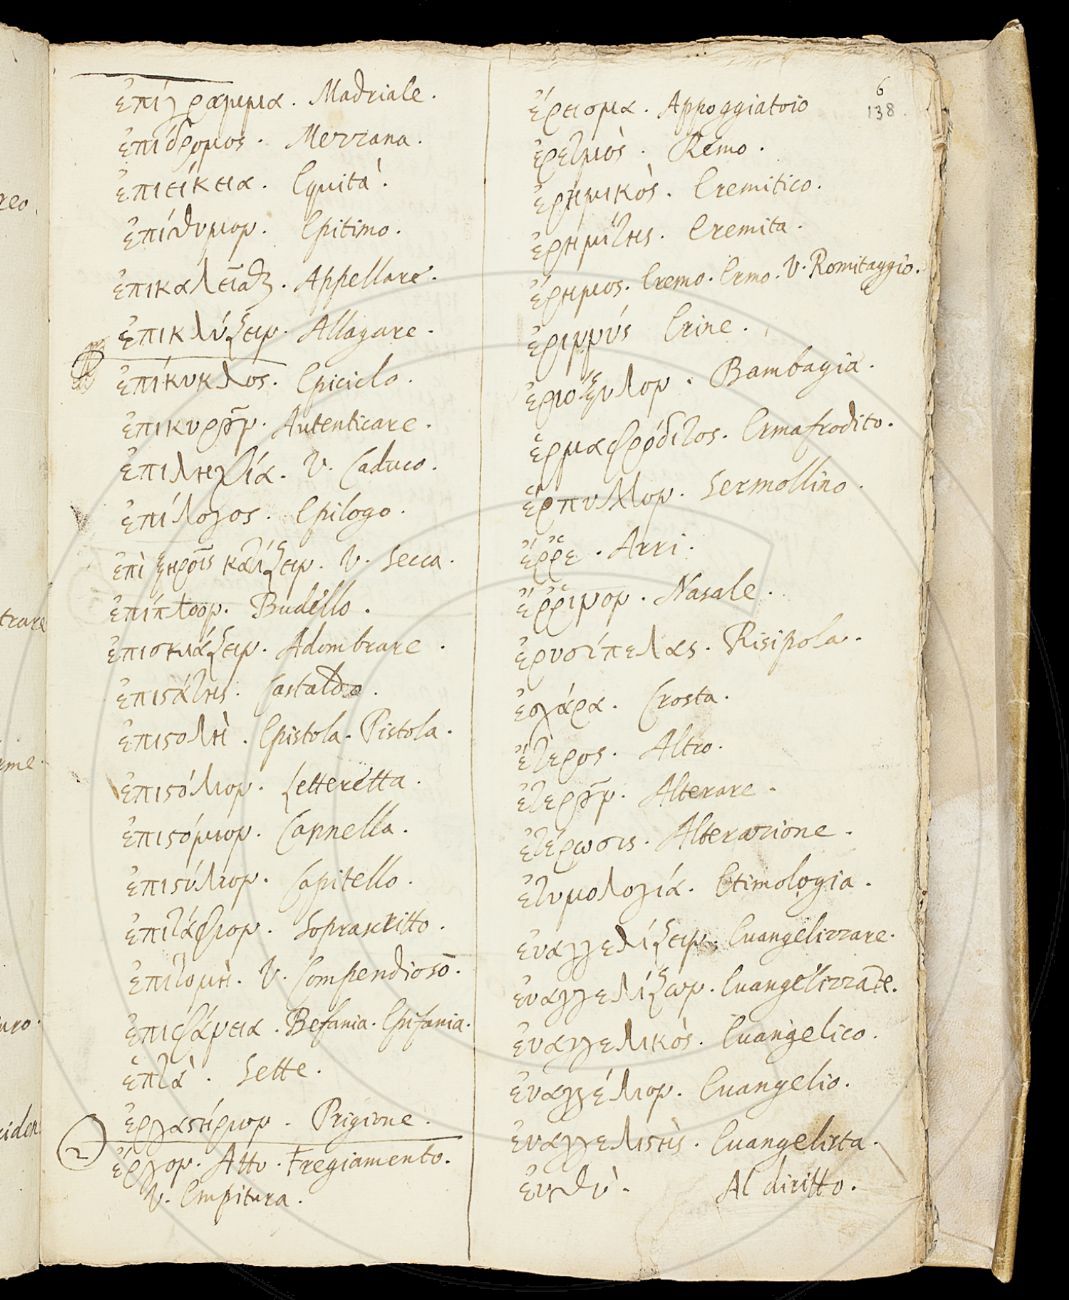 ἐπίγραμμα. Madriale.
ἐπίδρομος. Mezzana.
ἐπιείκεια. Equità.
ἐπίθυμον. Epitimo.
ἐπικαλεῖσθαι. Appellare.
ἐπικλύζειν. Allagare.
ἐπίκυκλος. Epiciclo.
ἐπικυροῦν. Autenticare.
ἐπιληψία. V. Caduco.
ἐπίλογος. Epilogo.
ἐπὶ ξηροῖς καθίζειν. V. Secca.
ἐπίπλοον. Budello.
ἐπισκιάζειν. Adombrare.
ἐπιστάτης. Castaldo.
ἐπιστολὴ. Epistola. Pistola.
ἐπιστόλιον. Letteretta.
ἐπιστόμιον. Cannella.
ἐπιστύλιον. Capitello.
ἐπιτάφιον. Soprascritto.
ἐπιτομὴ. V. Compendioso.
ἐπιφάνεια. Befania. Epifania.
ἑπτὰ. Sette.
ἐργαστήριον. Prigione.
2
ἔργον. Atto. Fregiamento.
V. Empitura.
6
138.
ἔρεισμα. Appoggiatoio
ἐρετμὸς. Remo.
ἐρημικὸς. Eremitico.
ἐρημίτης. Eremita.
ἔρημος. Eremo. Ermo. V. Romitaggio.
ἐριννύς Erine.
ἐριόξυλον. Bambagia.
ἑρμαφρόδιτος. Ermafrodito.
ἕρπυλλον. Sermollino.
ἔῤῥε. Arri.
ἔῤῥινον. Nasale.
ἐρυσίπελας. Risipola.
ἐσχάρα. Crosta.
ἕτερος. Altro.
ἑτεροῦν. Alterare.
ἑτέρωσις. Alterazione.
ἐτυμολογία. Etimologia.
εὐαγγελίζειν. Euangelizzare.
εὐαγγελίζων. Euangelizzante.
εὐαγγελικὸς. Euangelico.
εὐαγγέλιον. Euangelio.
εὐαγγελιστὴς. Euangelista.
εὐθὺ. Al diritto.